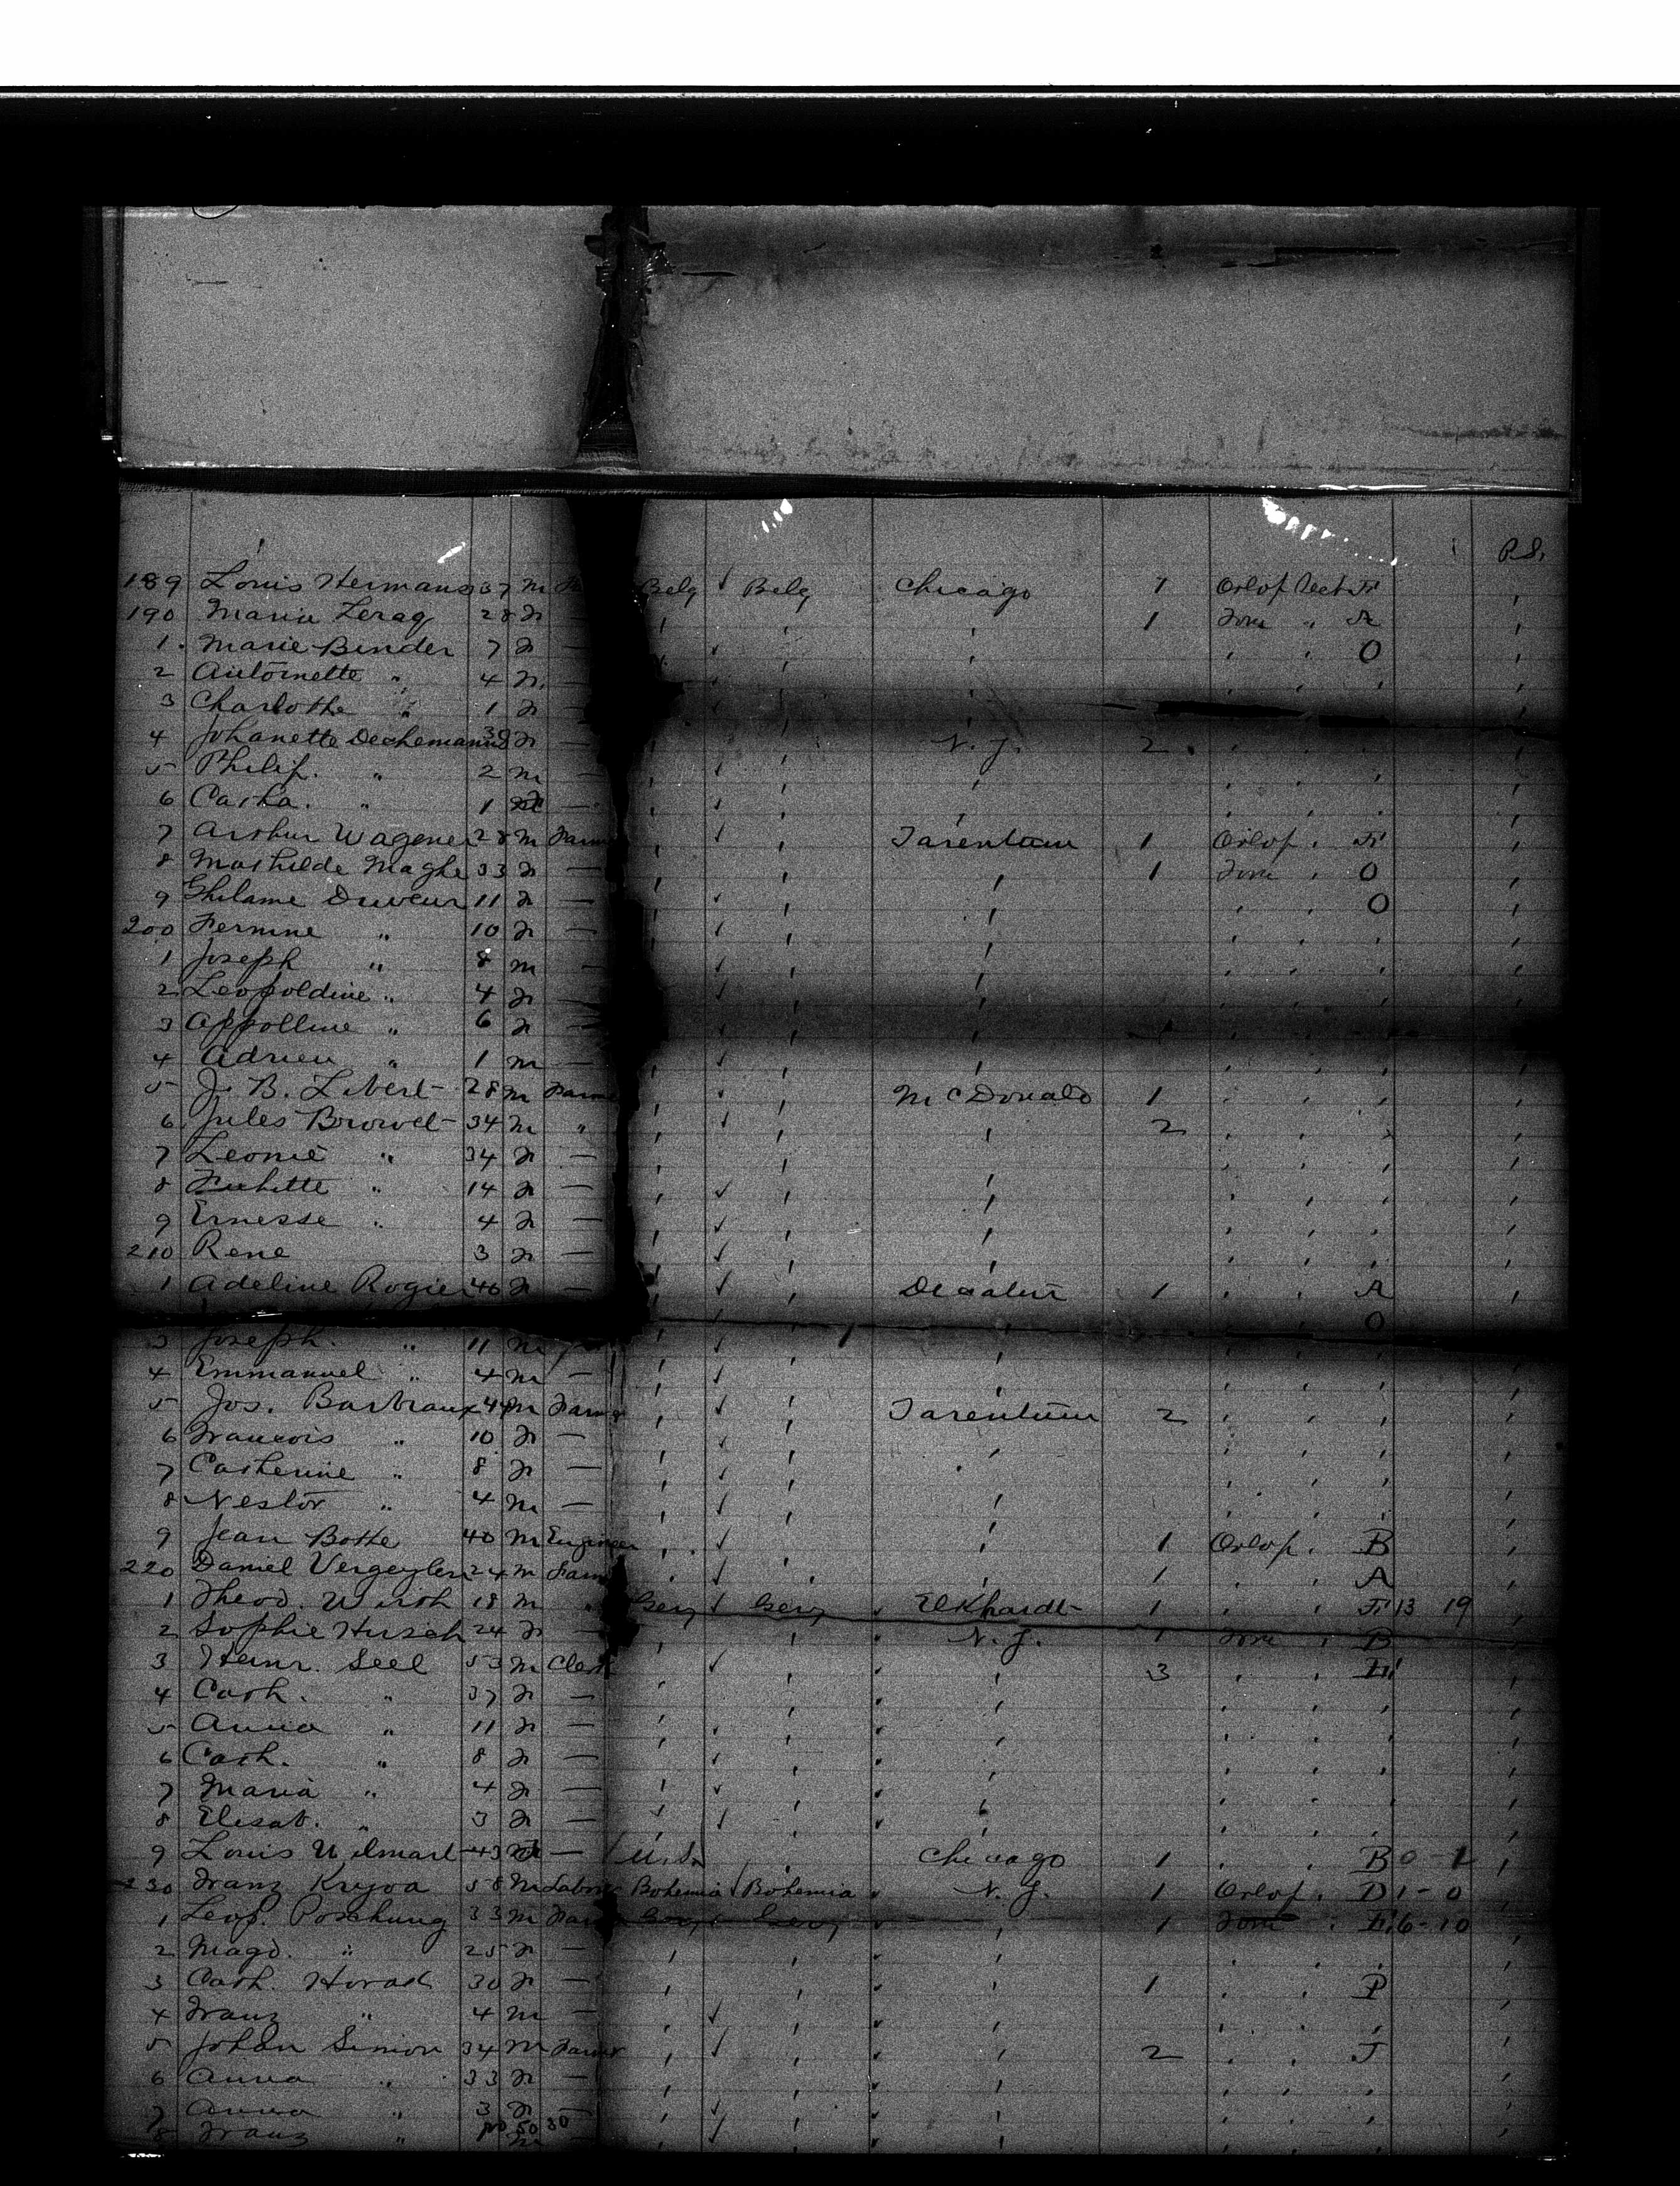 P.S.
189 Louis Hermans 37 m Belg ✓ Belg Chicago 1 Orlop Deck F
190 Maria Leraq 28 f — " " " 1 Fore " A "
1 Marie Binder 7 f — " " " " " O "
2 Antoinette " 4 f — " " " " " " "
3 Charlotte " 1 f — " " "
4 Johanette Dechemanns 38 f — " " N. J. 2 " " " "
5 Philip. " 2 m — " ✓ " " " " " "
6 Catha. " 1 — " ✓ " " " " " "
7 Arthur Wagener 28 m Farm " ✓ " Tarentum 1 Orlop " F "
8 Mathilde Maghe 33 f — " " " 1 Fore " O "
9 Ghilame Duveur 11 f — " ✓ " " " " O "
200 Fermine " 10 f — " ✓ " " " " " "
1 Joseph " 8 m — " ✓ " " " " " "
2 Leopoldine " 4 f — " ✓ " " " " " "
3 Appolline " 6 f — " ✓ " " " " " "
4 Adrien " 1 m — " ✓ " " " " " "
5 J. B. Libert 28 m Farm " ✓ " McDonald 1 " " " "
6 Jules Brouvet 34 m " " ✓ " " 2 " " " "
7 Leonie " 34 f — " " " " " " "
8 " 14 f — " ✓ " " " " " "
9 Ernesse " 4 f — " ✓ " " " " " "
210 Rene 3 f — " ✓ " " " " " "
1 Adeline Rogier 46 f — " ✓ " Decatur 1 " " A "
O
3 Joseph. " 11 m " ✓ " " " " " "
4 Emmanuel " 4 m — " ✓ " " " " " "
5 Jos. Barbraux 44 m Farm " ✓ " Tarentum 2 " " " "
6 Francois " 10 f — " ✓ " " " " " "
7 Catherine " 8 f — " ✓ " " " " " "
8 Nestor " 4 m — " ✓ " " " " " "
9 Jean Bothe 40 m Engineer " ✓ " " 1 Orlop " B "
220 Daniel Vergeylen 24 m Farm " ✓ " " 1 " " A "
1 Theod. Wirth 18 m " Gery ✓ Gery " Elkhardt 1 " " F 13 19 "
2 Sophie Hirsch 24 f — " " " N. J. 1 Fore " B "
3 Heinr. Seel 53 m Clerk " ✓ " " " 3 " " F "
4 Cath. " 37 f — " " " " " " " "
5 Anna " 11 f — " ✓ " " " " " " "
6 Cath. " 8 f — " ✓ " " " " " " "
7 Maria " 4 f — " ✓ " " " " " " "
8 Elisab. " 3 f — " ✓ " " " " " " "
9 Louis Wilmart 43 — U.S. " Chicago 1 " " B 0-1 "
230 Franz Kryova 58 m Labor Bohemia ✓ Bohemia " N. J. 1 Orlop " D 1-0 "
1 Leop. Poschung 33 m Farm Gery ✓ Gery " " 1 Fore " F 6-10 "
2 Magd. " 25 f — " " " " " " " "
3 Cath. Horad 30 f — " ✓ " " " 1 " " P "
4 Franz " 4 m — " ✓ " " " " " " "
5 Johan Simon 34 m Farmer " ✓ " " " 2 " " J "
6 Anna " 33 f — " " " " " " " "
7 Anna " 3 f — " ✓ " " " " " " "
8 Franz " m — " ✓ " " " " " " "